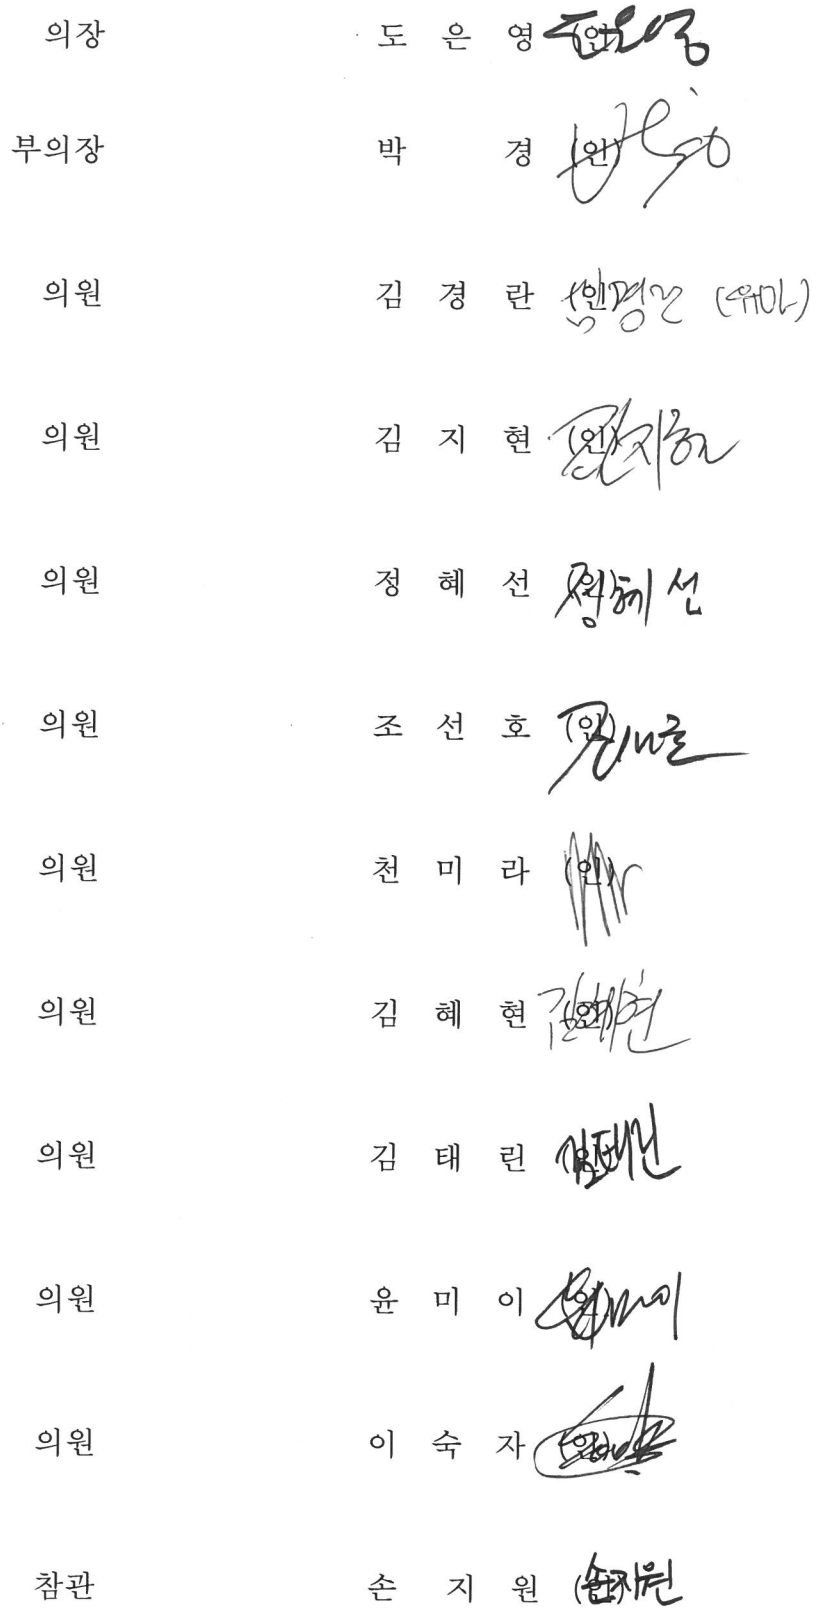 의장 도 은 영 (인)
부의장 박 경 (인)
의원 김 경 란 (인)
의원 김 지 현 (인)
의원 정 혜 선 (인) 정혜선
의원 조 선 호 (인)
의원 천 미 라 (인)
의원 김 혜 현 (인) 김혜현
의원 김 태 린 (인) 김태린
의원 윤 미 이 (인)
의원 이 숙 자 (인)
참관 손 지 원 (인) 손지원